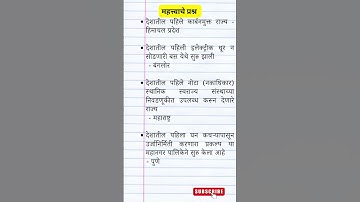 महत्त्वाचे प्रश्न
देशातील पहिले कार्बनमुक्त राज्य -
हिमाचल प्रदेश
देशातील पहिली इलेक्ट्रीक धूर न
सोडणारी बस येथे सुरु झाली
- बंगलोर
देशातील पहिले नोटा (नकाधिकार)
स्थानिक स्वराज्य संस्थाच्या
निवडणूकीत उपलब्ध करून देणारे
राज्य
- महाराष्ट्र
देशातील पहिला घन कचऱ्यापासून
उर्जानिर्मिती करणारा प्रकल्प या
महानगर पालिकेने सुरु केला आहे
- पुणे
SUBSCRIBE